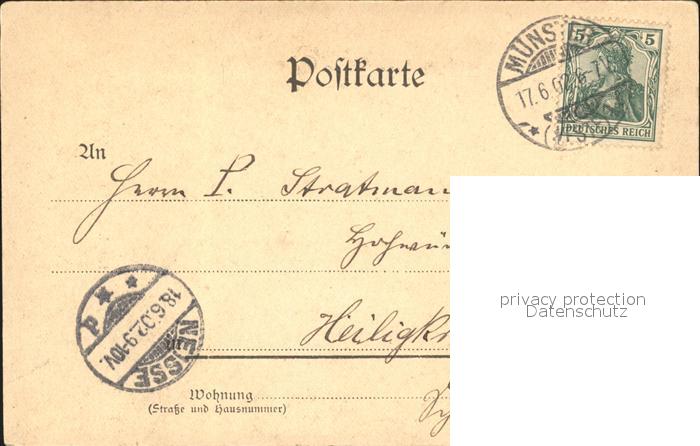 Postkarte
MÜNSTER
17.6.02 6-7
(WESTF.)
5 5
DEUTSCHES REICH
An
Herrn P. Stratman
Hochwür
privacy protection
Datenschutz
Heiligk
P
18.6.02.9-10V.
NEISSE
in
Wohnung
(Straße und Hausnummer)